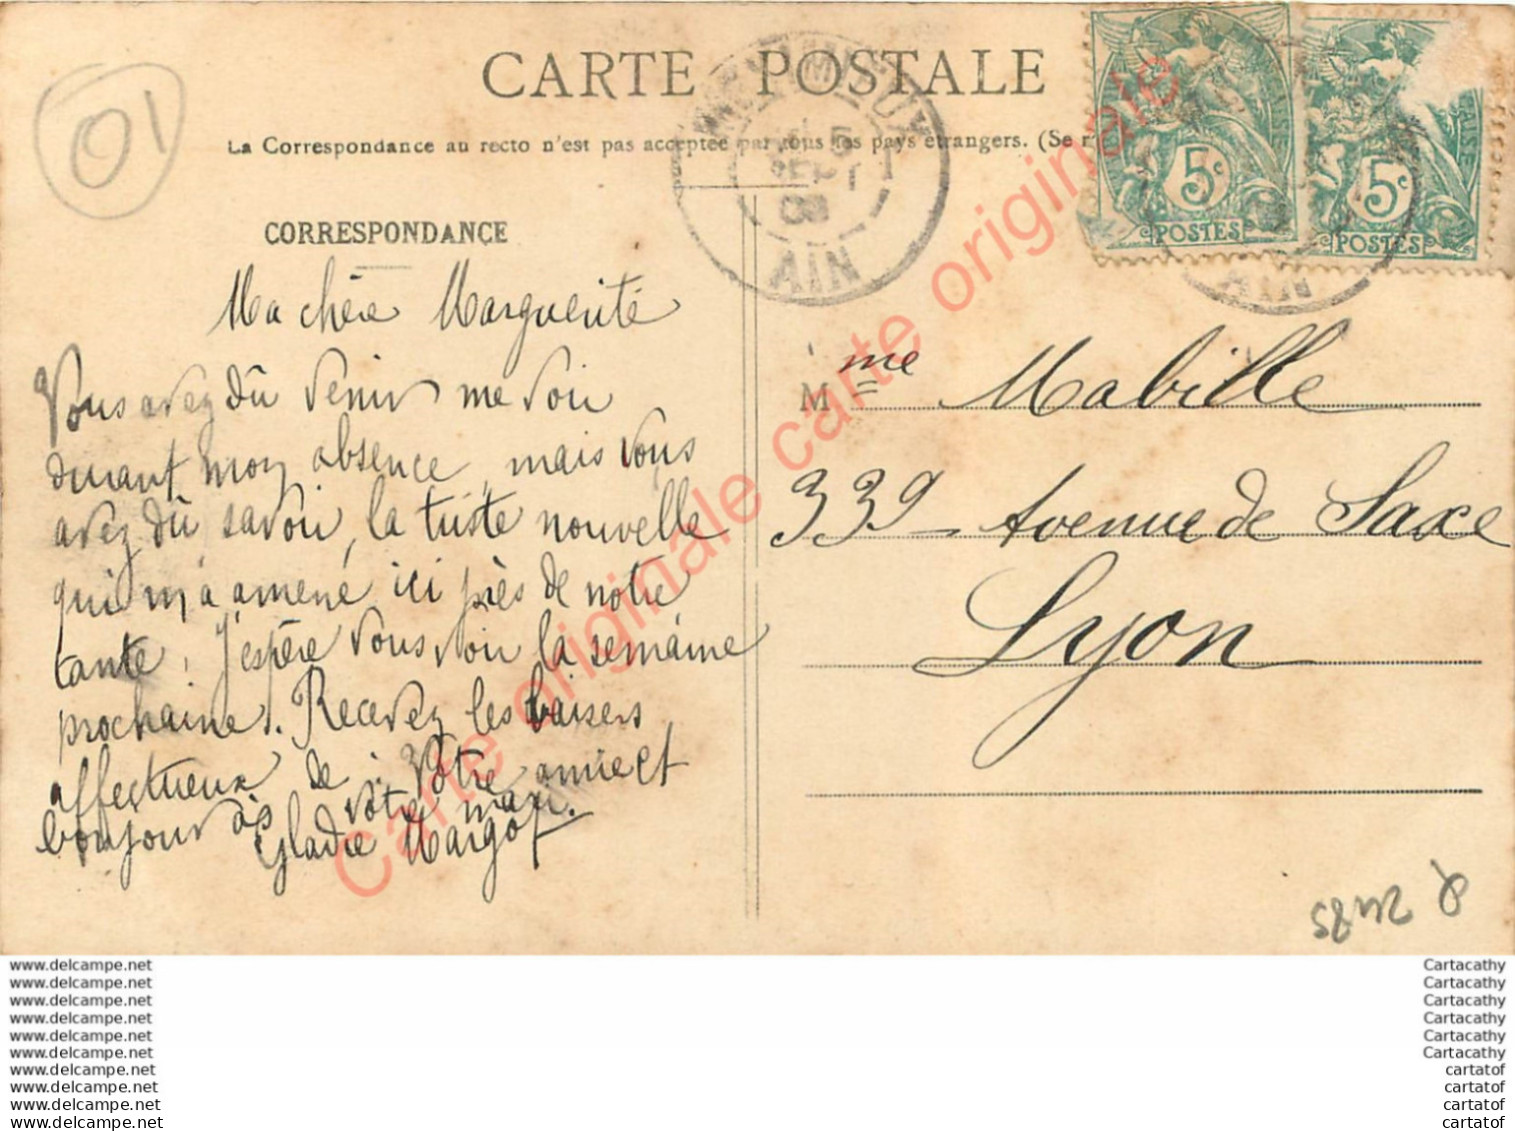 01
CARTE POSTALE
La Correspondance au recto n'est pas acceptée par tous les pays étrangers. (Se r
CORRESPONDANCE
5
SEPT
AIN
5c
POSTES
5c
POSTES
Ma chère Marguerite
Vous avez dû venir me voir
durant mon absence, mais vous
avez dû savoir, la triste nouvelle
qui m'a amené ici près de notre
tante. J'espère vous voir la semaine
prochaine. Recevez les baisers
affectueux de votre amie et
bonjour à votre mari.
Margot
Mme Mabille
339 Avenue de Saxe
Lyon
2485
Carte originale carte originale
Carte originale
www.delcampe.net
www.delcampe.net
www.delcampe.net
www.delcampe.net
www.delcampe.net
www.delcampe.net
www.delcampe.net
www.delcampe.net
www.delcampe.net
www.delcampe.net
Cartacathy
Cartacathy
Cartacathy
Cartacathy
Cartacathy
Cartacathy
cartatof
cartatof
cartatof
cartatof